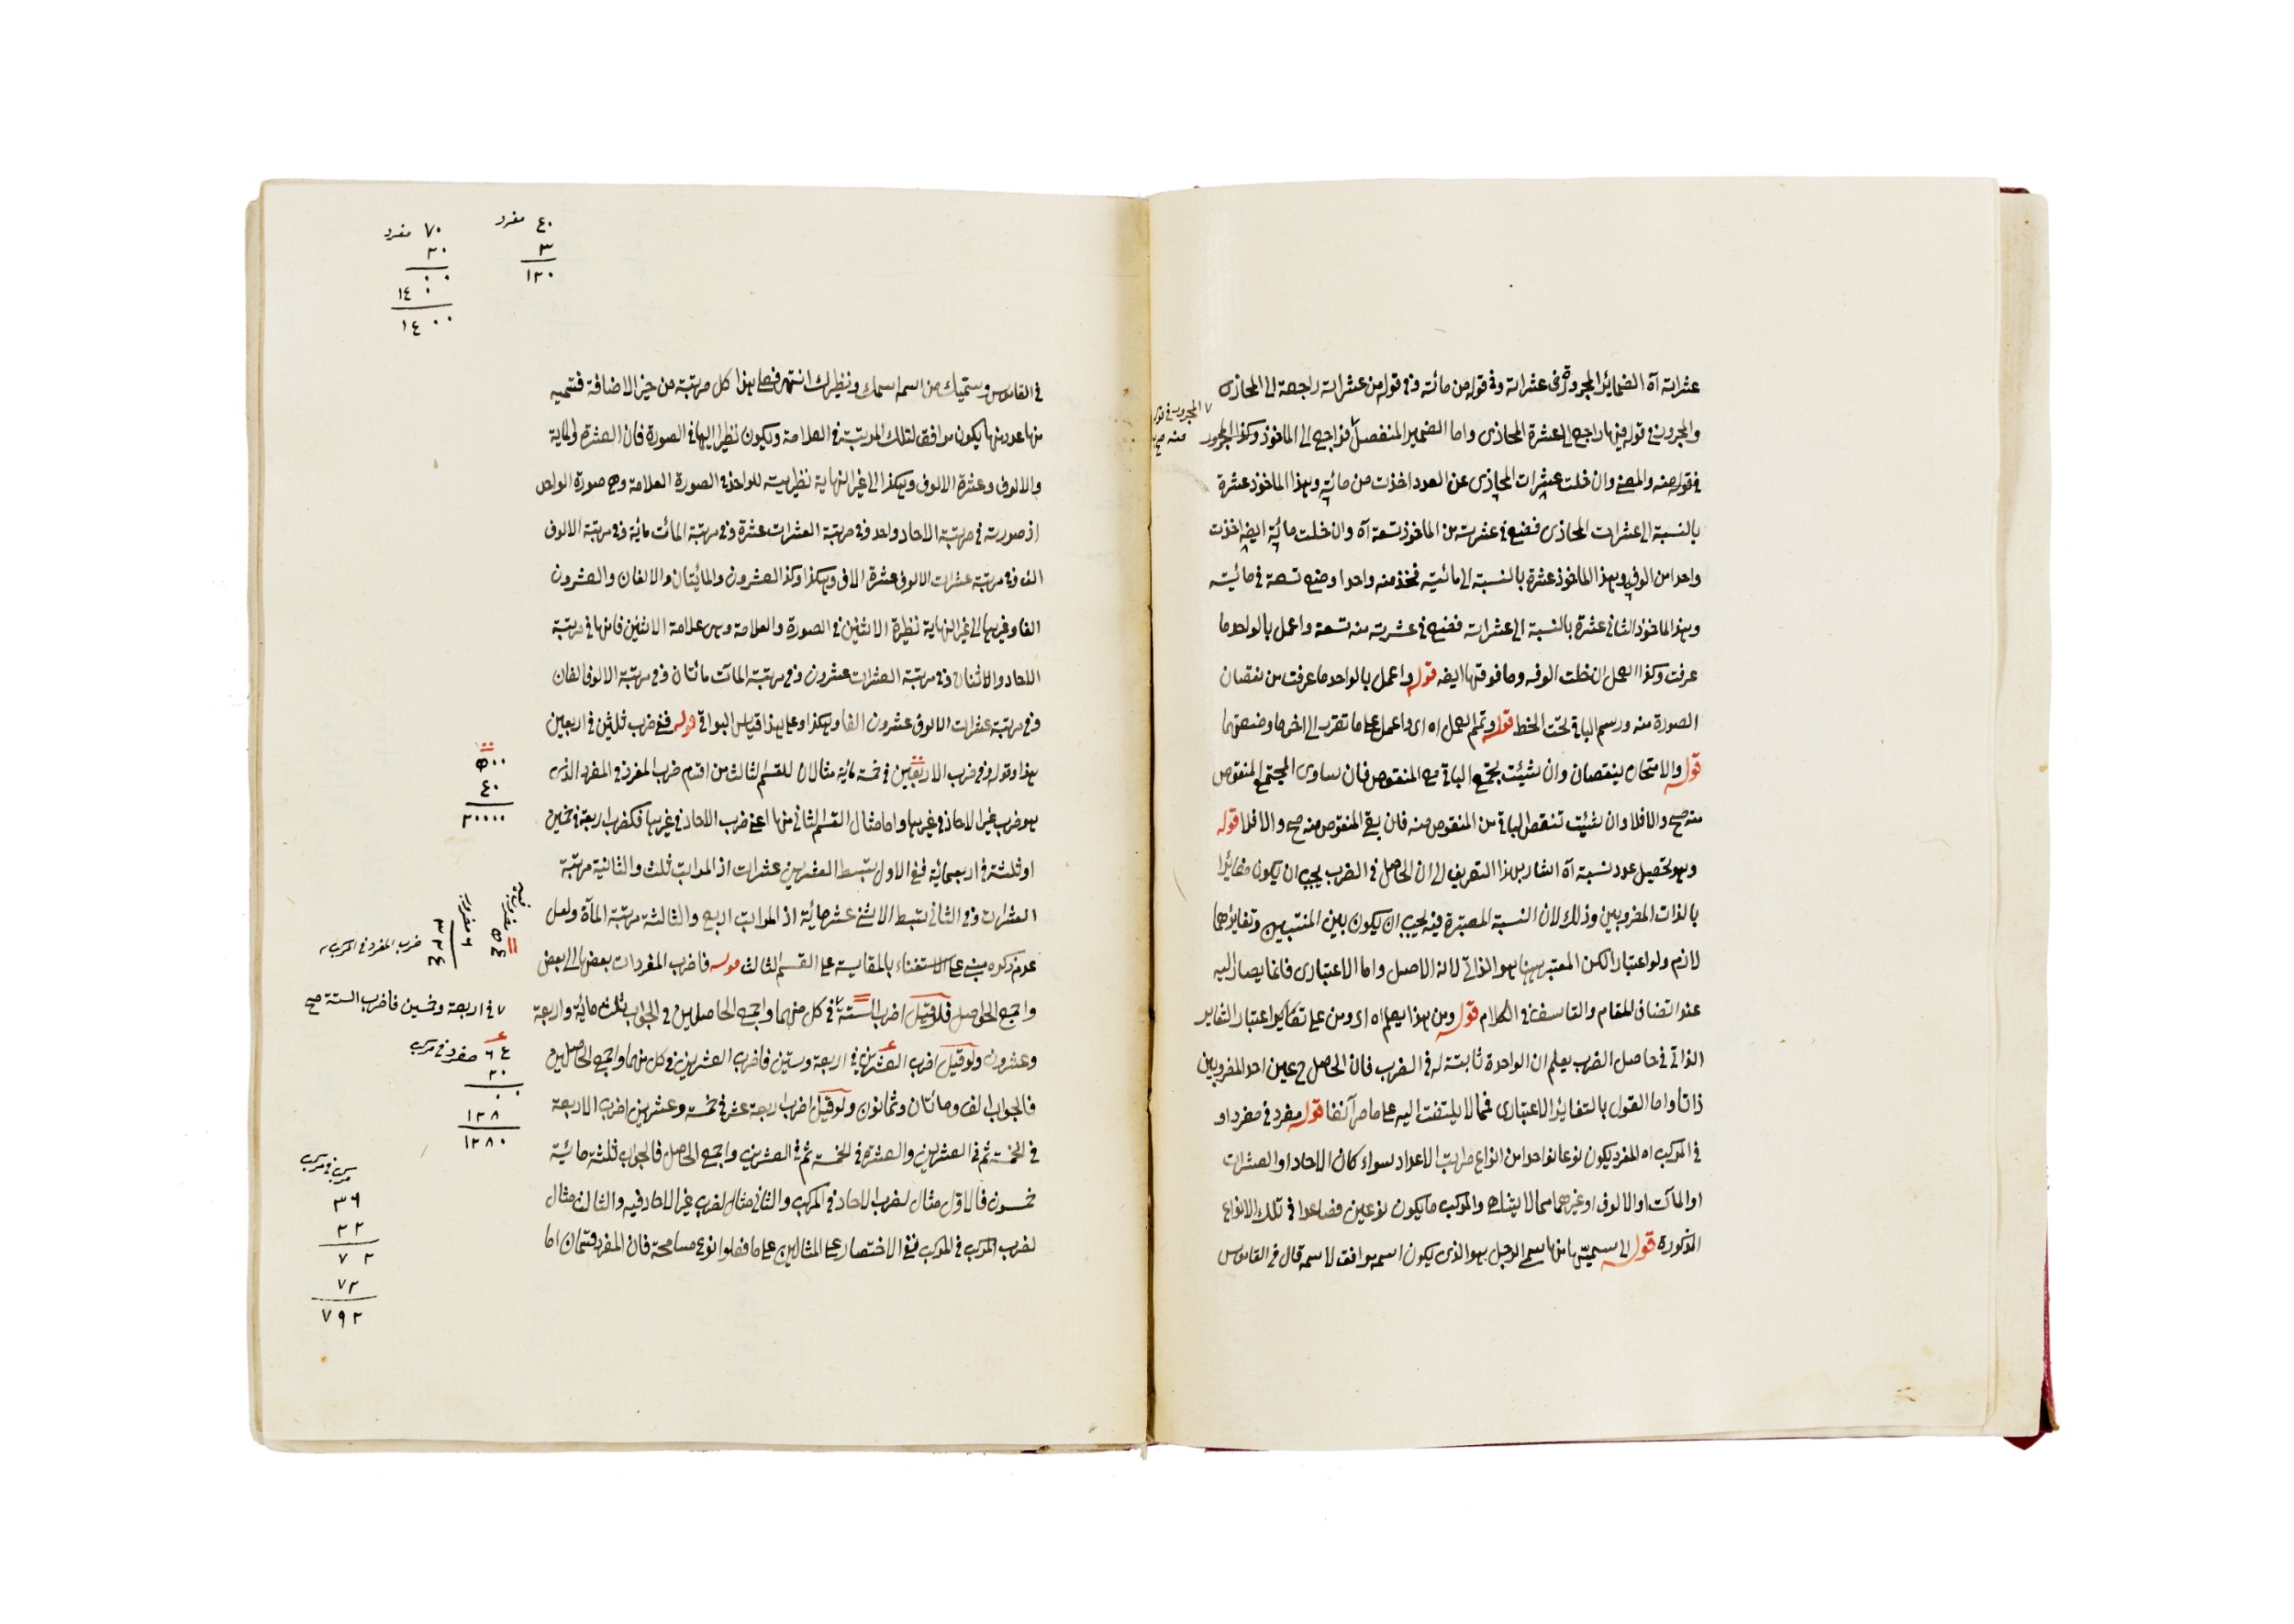 عشراته آه الضمائر المجرورة في عشراته وفي قوله من مائته وفي قوله من عشراته راجعة الى المحاذى
والمجرور في قوله فيها راجع الى العشرة المحاذى واما الضمير المنفصل فراجع الى المأخوذ وكذا المجرور
في قوله منه والمعنى وان خلت عشرات المحاذى عن العدد اخذت من مائته وهذا المأخوذ عشرة
بالنسبة الى عشرات المحاذى فضع في عشرته من المأخوذ تسعة آه وان خلت مائته ايضا اخذت
واحدا من الوفه وهذا المأخوذ عشرة بالنسبة الى مائيته فخذ منه واحدا وضع تسعة في مائيته
وهذا المأخوذ الثانى عشرة بالنسبة الى عشراته فضع في عشرته منه تسعة واعمل بالواحد ما
عرفت وكذا العمل ان خلت الوفه وما فوقها ايضه قوله واعمل بالواحد ما عرفت من نقصان
الصورة منه ورسم الباقى تحت الخط قوله وتم العمل اه اى واعمل على ما تقرب الى اخرها وضعتهما
قوله والامتحان بنقصان وان شئت بجمع الباقى مع المنقوص فان ساوى المجتمع المنقوص
منه صح والا فلا وان شئت تنقص الباقى من المنقوص منه فان بقى المنقوص منه صح والا فلا قوله
وهو تحصيل عدد نسبة آه اشار بهذا التعريف الى ان الحاصل في الضرب يجب ان يكون مغائرا
بالذات المضروبين وذلك لان النسبة المعتبرة فيه يجب ان يكون بين المنتسبين وتغايرهما
لازم ولو اعتبارا لكن المعتبر ههنا هو الذاتى لانه الاصل واما الاعتبارى فانما يصار اليه
عند اتضاق المقام والتاسف في الكلام قوله ومن هذا يعلم اه اى ومن على تقدير اعتبار التغاير
الذاتى في حاصل الضرب يعلم ان الواحدة ثابتة له في الضرب فان الحاصل ح عين احد المضروبين
ذاتا واما القول بالتغاير الاعتبارى فمما لا يلتفت اليه على ما مر آنفا قوله مفرد في مفرد او
في المركب اه المفرد يكون نوعا واحدا من انواع مراتب الاعداد سواء كان الاحاد او العشرات
او المآت او الالوف او غيرهما مما لا يتناهى والمركب ما يكون نوعين فصاعدا في تلك الانواع
المذكورة قوله الى سميتها منها سمى الرجل هو الذى يكون اسمه موافق لاسمه قال في القاموس
المجرور في قوله
منه صح
في القاموس وسميك من اسمه اسمك ونظيرك انتهى فعلى هذا كل مرتبة من خير الاضافة فسميه
منها عدد منها يكون موافق لتلك المرتبة في العلامة ويكون نظيرا لها في الصورة فان العشرة والمائة
والالوف وعشرة الالوف وهكذا الى غير النهاية نظيريته للواحد في الصورة العلامة وهى صورة الواحد
اذ صورته في مرتبة الاحاد واحد وفي مرتبة العشرات عشرة وفي مرتبة المآت مائة وفي مرتبة الالوف
الف وفي مرتبة عشرات الالوف عشرة الاف وهكذا وكذا العشرون والمائتان والالفان والعشرون
الفا وغيرها الى غير النهاية نظيرة الاثنين في الصورة والعلامة وهى علامة الاثنين فانها في مرتبة
الاحاد والاثنان وفي مرتبة العشرات عشرون وفي مرتبة المآت مائتان وفي مرتبة الالوف الفان
وفي مرتبة عشرات الالوف عشرون الفا وهكذا وعلى هذا قياس البواقى قوله ففى ضرب ثلثين في اربعين
هذا وقوله وفي ضرب الاربعين في خمسمائة مثالان للقسم الثالث من اقسام ضرب المفرد في المفرد الذى
هو ضرب غير الاحاد في غيرها واما مثال القسم الثانى منها اعنى ضرب الاحاد في غيرها فكضرب اربعة في خمسين
او ثلثة في اربعمائة ففى الاول تبسط العشرين عشرات اذ المراتب ثلث والثانية مرتبة
العشرات وفي الثانى تبسط الاثنى عشر مائة اذ المراتب اربع والثالثة مرتبة المآت ولعل
عدم ذكره مبنى على الاستغناء بالمقايسة على القسم الثالث قوله فاضرب المفردات بعضها الى بعض
واجمع الحواصل فلو قيل اضرب الستة في كل منهما واجمع الحاصلين في الجواب ثلث مائة واربعة
وعشرون ولو قيل اضرب العشرين في اربعة وستين فاضرب العشرين في كل منهما واجمع الحاصلين
فالجواب الف ومائتان وثمانون ولو قيل اضرب اربعة عشر في خمسة وعشرين اضرب الاربعة
في الخمسة ثم في العشرين والعشرة في الخمسة ثم في العشرين واجمع الحاصل فالجواب ثلثة مائية
خمسون فالاول مثال لضرب الاحاد في المركب والثانى مثال لضرب غير الاحاد فيه والثالث مثال
لضرب المركب في المركب ففى الاختصار على المثالين على ما فعلوا نوع مسامحة فان المفرد قسمان اما
٤٠ مفرد
٣
١٢٠
٧٠ مفرد
٢٠
٠٠
١٤٠
١٤٠٠
٥٠٠
٤٠
٢٠٠٠٠
٥٤
٦ مضروب
٣٢٤
ضرب المفرد في المركب
في اربعة وخمسين فاضرب الستة صح
٦٤ مفرد في مركب
٢٠
٠٠
١٢٨
١٢٨٠
مركب في مركب
٣٦
٢٢
٧٢
٧٢
٧٩٢